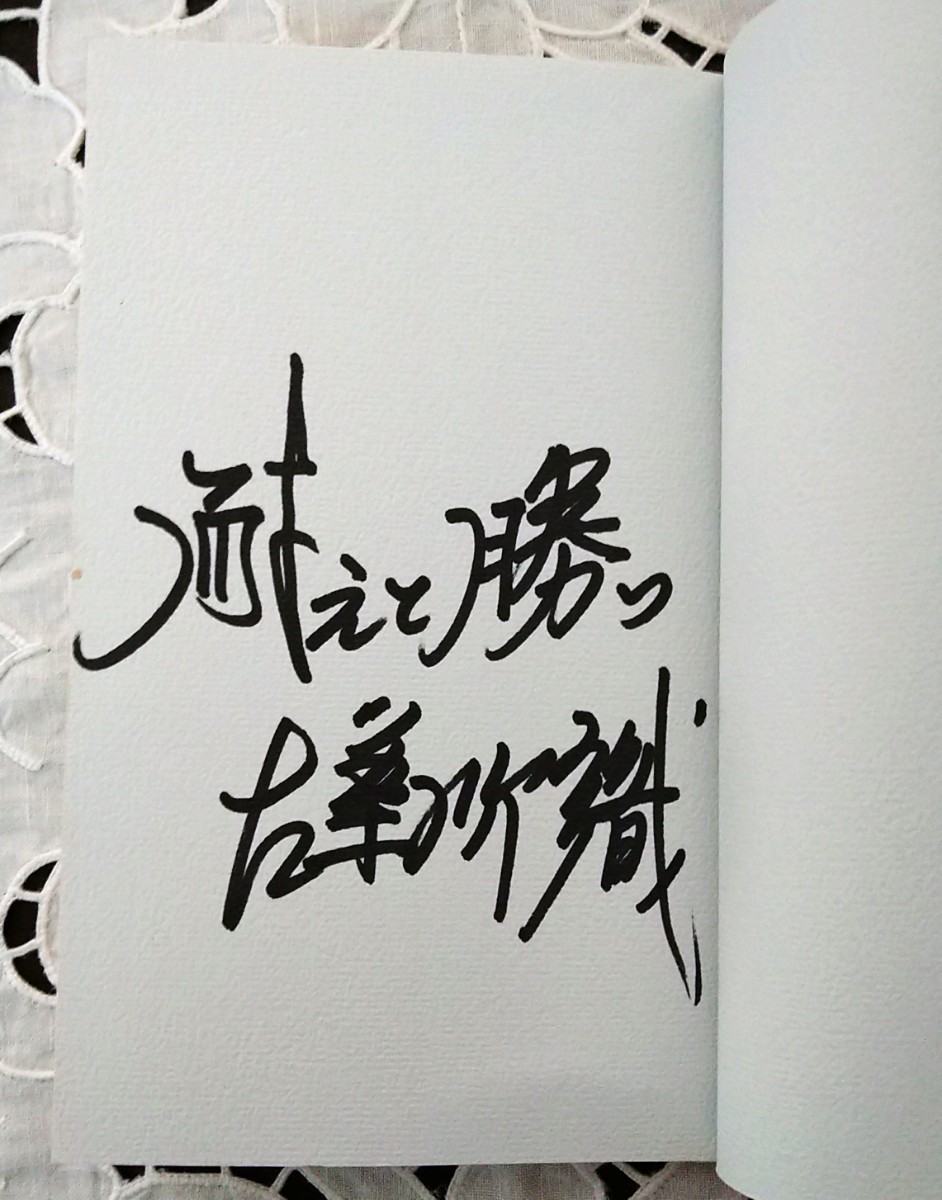 耐えて勝つ
古葉竹識